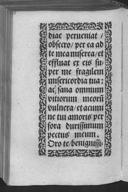 diac perueniat /
obsecro/ per ea ad
te mea misera/ et
effluat ex eis su
per me fragilem
misericordia tua:
ac sana omnium
vitiorum meorũ
vulnera et acumi
ne tui amoris per
fora durissimum
pectus meum.
Oro te benignissi